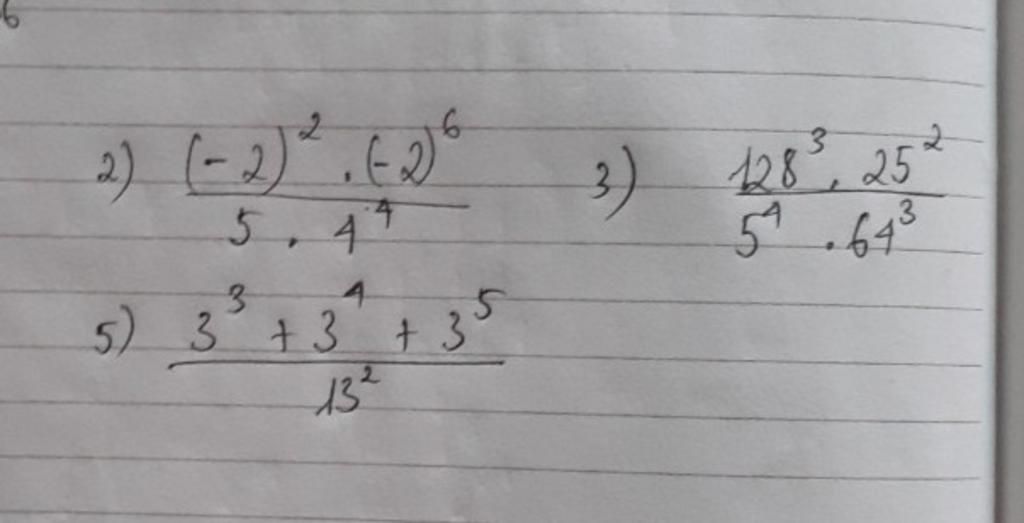 6
2) (-2)² . (-2)⁶ / 5 . 4⁴ 3) 128³ . 25² / 5⁴ . 64³
5) 3³ + 3⁴ + 3⁵ / 13²